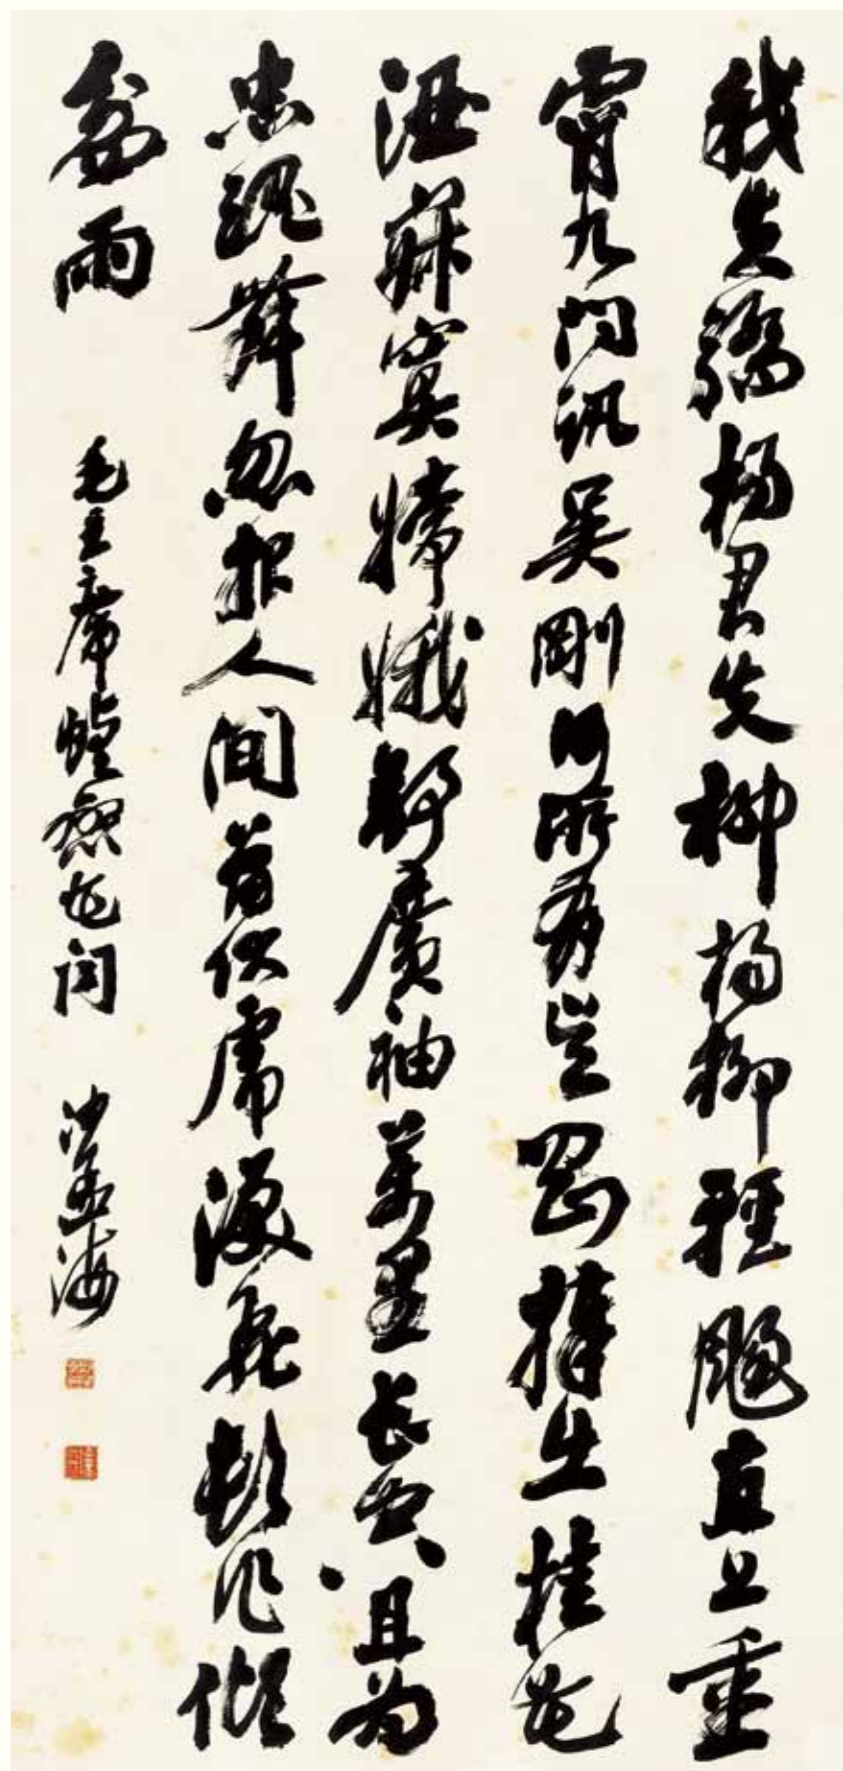 我失驕楊君失柳楊柳輕颺直上重
霄九問訊吳剛何所有吳剛捧出桂花
酒寂寞嫦娥舒廣袖萬里長空且為
忠魂舞忽報人間曾伏虎淚飛頓作傾
盆雨 毛主席蝶戀花 沙孟海